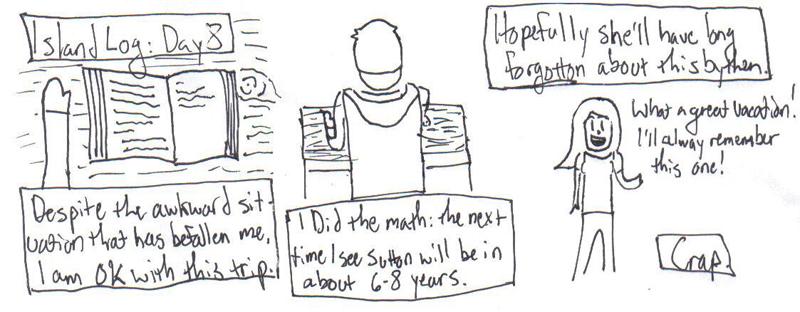 Island Log: Day 8
Despite the awkward sit-
uation that has befallen me,
I am OK with this trip.
I Did the math: the next
time I see Sutton will be in
about 6-8 years.
Hopefully she'll have long
forgotton about this by then.
What a great vacation!
I'll alway remember
this one!
Crap.